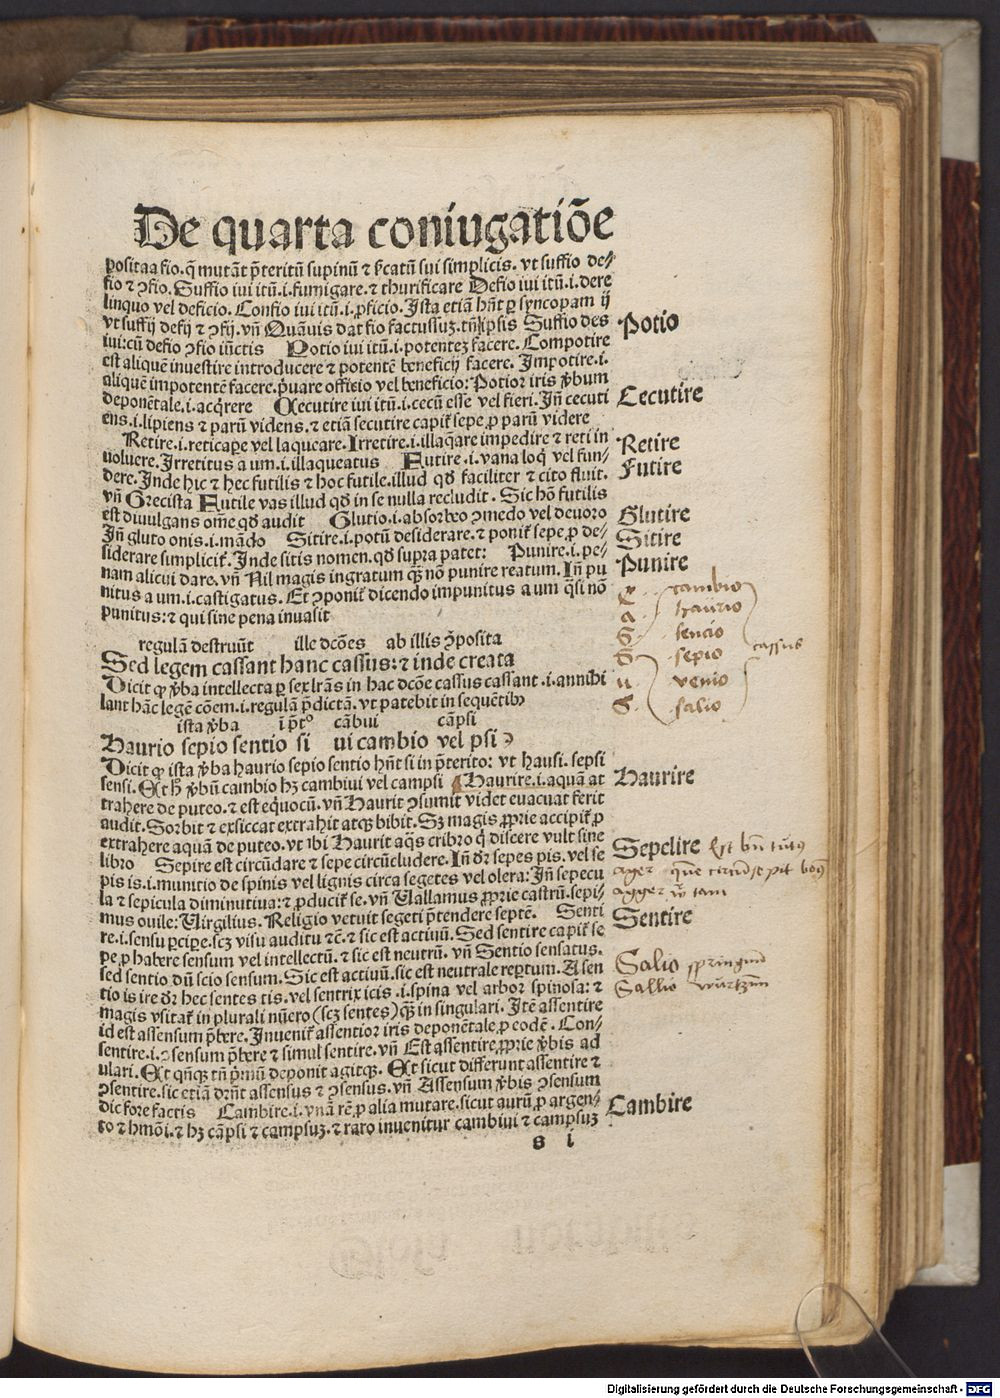 De quarta coniugatiōe
positaa fio. q̄ mutāt p̄teritū supinū ⁊ sc̄atū sui simplicis. vt suffio de⸗
fio ⁊ ꝯfio. Suffio iui itū .i. fumigare. ⁊ thurificare Defio iui itū .i. dere
linquo vel deficio. Confio iui itū .i. ꝓficio. Ista etiā hn̄t ꝑ syncopam ij
vt suffij defij ⁊ ꝯfij. vn̄ Quāuis dat fio factussuꝫ. tn̄ ipsis Suffio des
iui: cū defio ꝯfio iūctis Potio iui itū .i. potenteꝫ facere. Compotire
est aliquē inuestire introducere ⁊ potentē beneficij facere. Impotire .i.
aliquē impotentē facere. p̄uare officio vel beneficio: Potior iris v̄bum
deponētale .i. acq̄rere Cecutire iui itū .i. cecū esse vel fieri. Jn̄ cecuti
ens .i. lipiens ⁊ parū videns. ⁊ etiā secutire capit̄ sepe ꝓ parū videre
Retire .i. reticare vel laqueare. Irretire .i. illaq̄are impedire ⁊ reti in
uoluere. Irretitus a um .i. illaqueatus Futire .i. vana loq̄ vel fun⸗
dere. Inde hic ⁊ hec futilis ⁊ hoc futile. illud qđ faciliter ⁊ cito fluit.
vn̄ Grecista Futile vas illud qđ in se nulla recludit. Sic hō futilis
est diuulgans om̄e qđ audit Glutio .i. absorbeo ꝯmedo vel deuoro
Jn̄ gluto onis .i. mādo Sitire .i. potū desiderare. ⁊ ponit̄ sepe ꝓ de⸗
siderare simplicit̄. Inde sitis nomen. qđ supra patet: Punire .i. pe⸗
nam alicui dare. vn̄ Nil magis ingratum qꝫ nō punire reatum. Jn̄ pu
nitus a um .i. castigatus. Et ꝯponit̄ dicendo impunitus a um q̄si nō
punitus: ⁊ qui sine pena inuasit
regulā destruūt ille dc̄ōes ab illis ꝯposita
Sed legem cassant hanc cassus: ⁊ inde creata
Dicit ꝙ v̄ba intellecta ꝑ sex lr̄as in hac dc̄ōe cassus cassant .i. annihi
lant hāc legē cōem .i. regulā p̄dictā. vt patebit in sequētibꝫ
ista v̄ba ī p̄t° cābui cāpsi
Haurio sepio sentio si ui cambio vel psi ꝯ
Dicit ꝙ ista v̄ba haurio sepio sentio hn̄t si in p̄terito: vt hausi. sepsi
sensi. Et h̄ v̄bū cambio hꝫ cambiui vel campsi Haurire .i. aquā at
trahere de puteo. ⁊ est equocū. vn̄ Haurit ꝯsumit videt euacuat ferit
audit. Sorbit ⁊ exsiccat extrahit atqꝫ bibit. Sꝫ magis ꝓprie accipit̄ ꝓ
extrahere aquā de puteo. vt ibi Haurit aq̄s cribro q̄ discere vult sine
libro Sepire est circūdare ⁊ sepe circūcludere. Jn̄ dr̄ sepes pis. vel se
pis is .i. munitio de spinis vel lignis circa segetes vel olera: Jn̄ sepecu
la ⁊ sepicula diminutiua: ⁊ ꝓducit̄ se. vn̄ Uallamus ꝓprie castrū. sepi⸗
mus ouile: Uirgilius. Religio vetuit segeti p̄tendere septē. Senti
re .i. sensu ꝑcipe. scꝫ visu auditu ⁊c̄. ⁊ sic est actiuū. Sed sentire capit̄ se
pe ꝓ habere sensum vel intellectū. ⁊ sic est neutrū. vn̄ Sentio sensatus.
sed sentio dū scio sensum. Sic est actiuū. sic est neutrale reꝑtum. A sen
tio is ire dr̄ hec sentes tis. vel sentrix icis .i. spina vel arbor spinosa: ⁊
magis vsitat̄ in plurali nūero (scꝫ sentes) qꝫ in singulari. Jtē assentire
id est assensum p̄bere. Inuenit̄ assentior iris deponētale ꝓ eodē. Con⸗
sentire .i. ꝯsensum p̄bere ⁊ simul sentire. vn̄ Est assentire ꝓprie v̄bis ad
ulari. Et qn̄qꝫ tn̄ p̄mū deponit agitqꝫ. Et sicut differunt assentire ⁊
ꝯsentire. sic etiā drn̄t assensus ⁊ ꝯsensus. vn̄ Assensum v̄bis ꝯsensum
dic fore factis Cambire .i. vnā rē ꝓ alia mutare. sicut aurū ꝓ argen⸗
to ⁊ hmōi. ⁊ hꝫ cāpsi ⁊ campsuꝫ. ⁊ raro inuenitur cambiui ⁊ campsuꝫ
s i
Potio
Cecutire
Retire
Futire
Glutire
Sitire
Punire
c cambio
a haurio
s sencio
s sepio
u venio
s salio
cassus
Haurire
Sepelire
Sentire
Salio springen
Sallio
Cambire
Digitalisierung gefördert durch die Deutsche Forschungsgemeinschaft - DFG